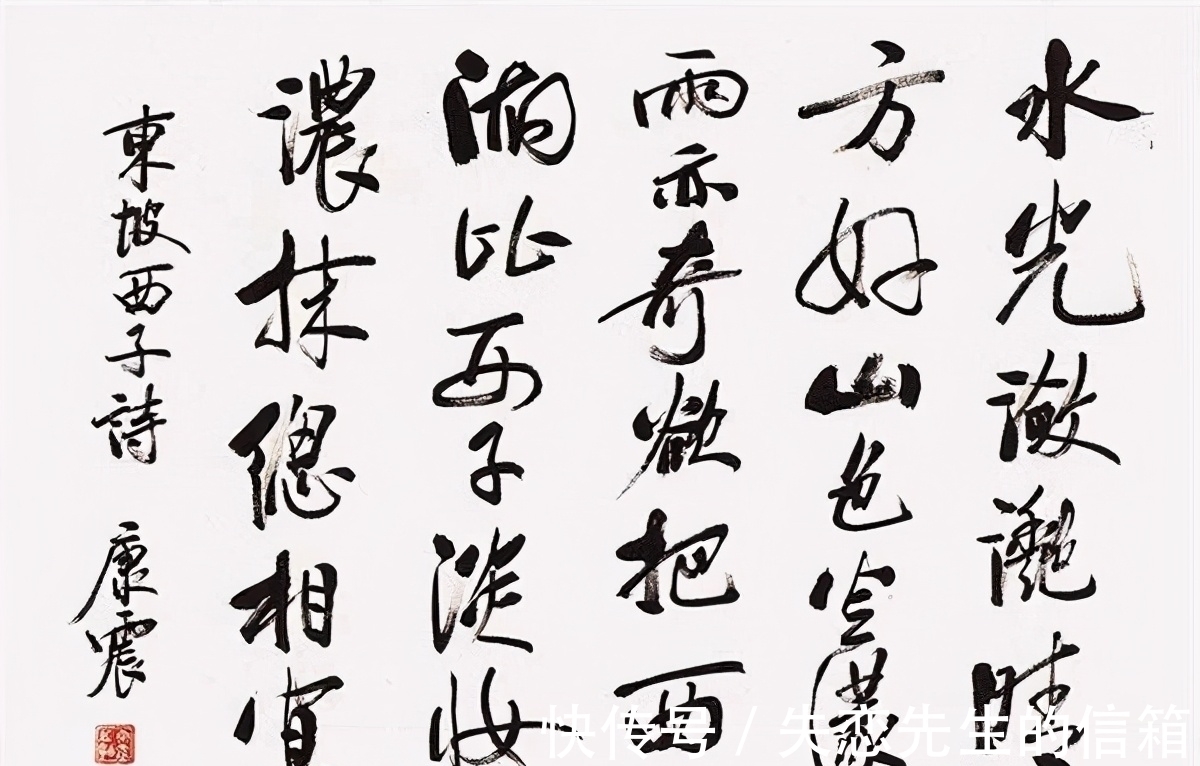 水光瀲灧晴
方好山色空濛
雨亦奇欲把西
湖比西子淡妆
濃抹總相宜
東坡西子詩 康震
快传号 / 失恋先生的信箱